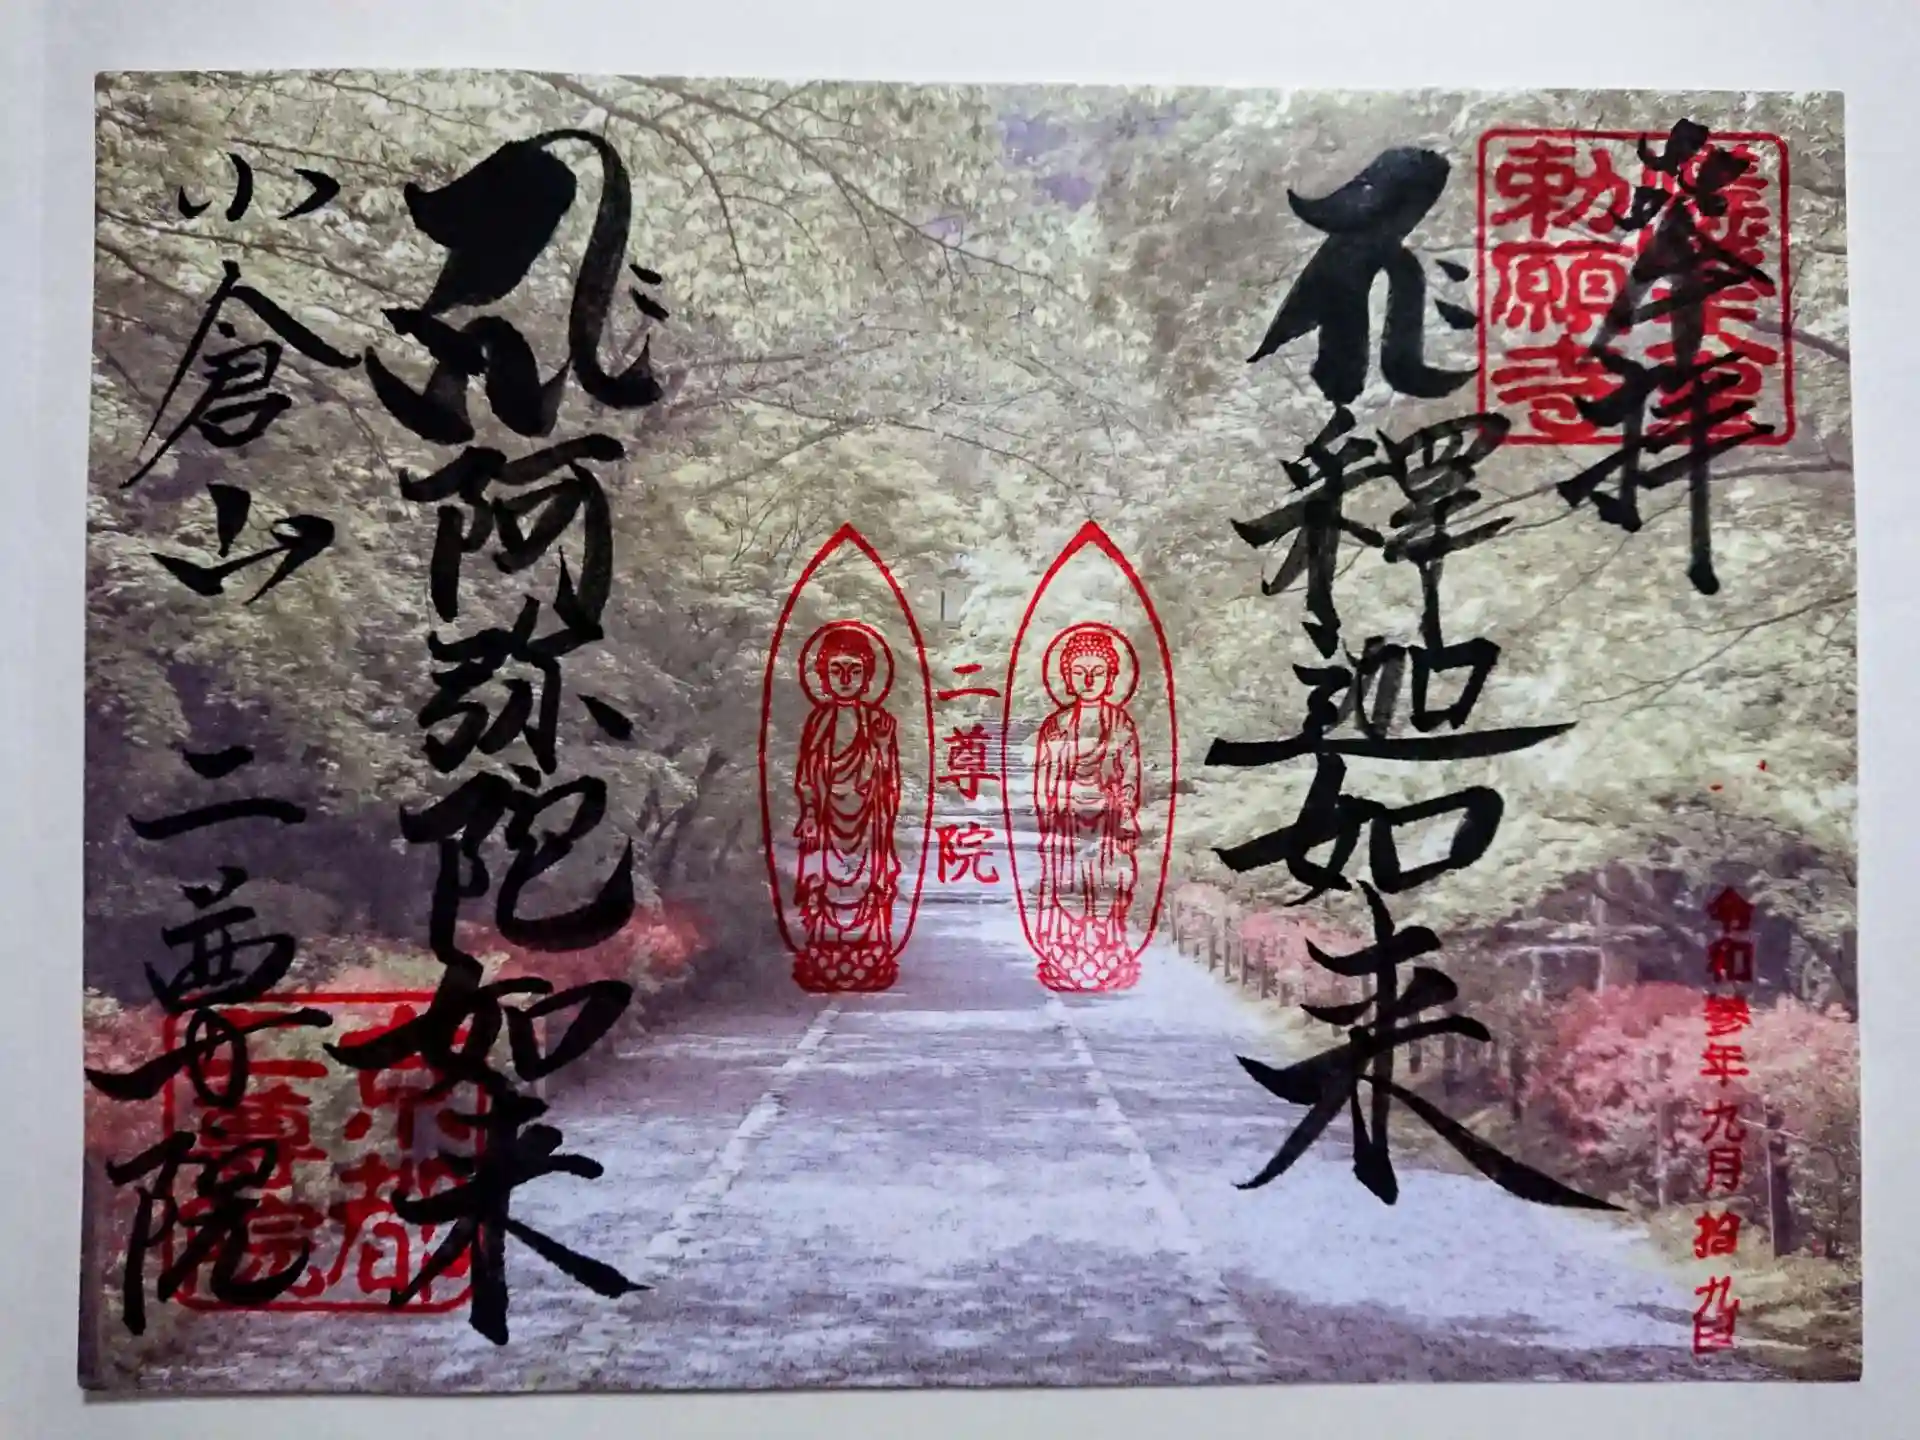 奉拝
勅願寺
釋迦如来
令和参年九月拾九日
二尊院
阿弥陀如来
小倉山 二尊院
京都
二尊院